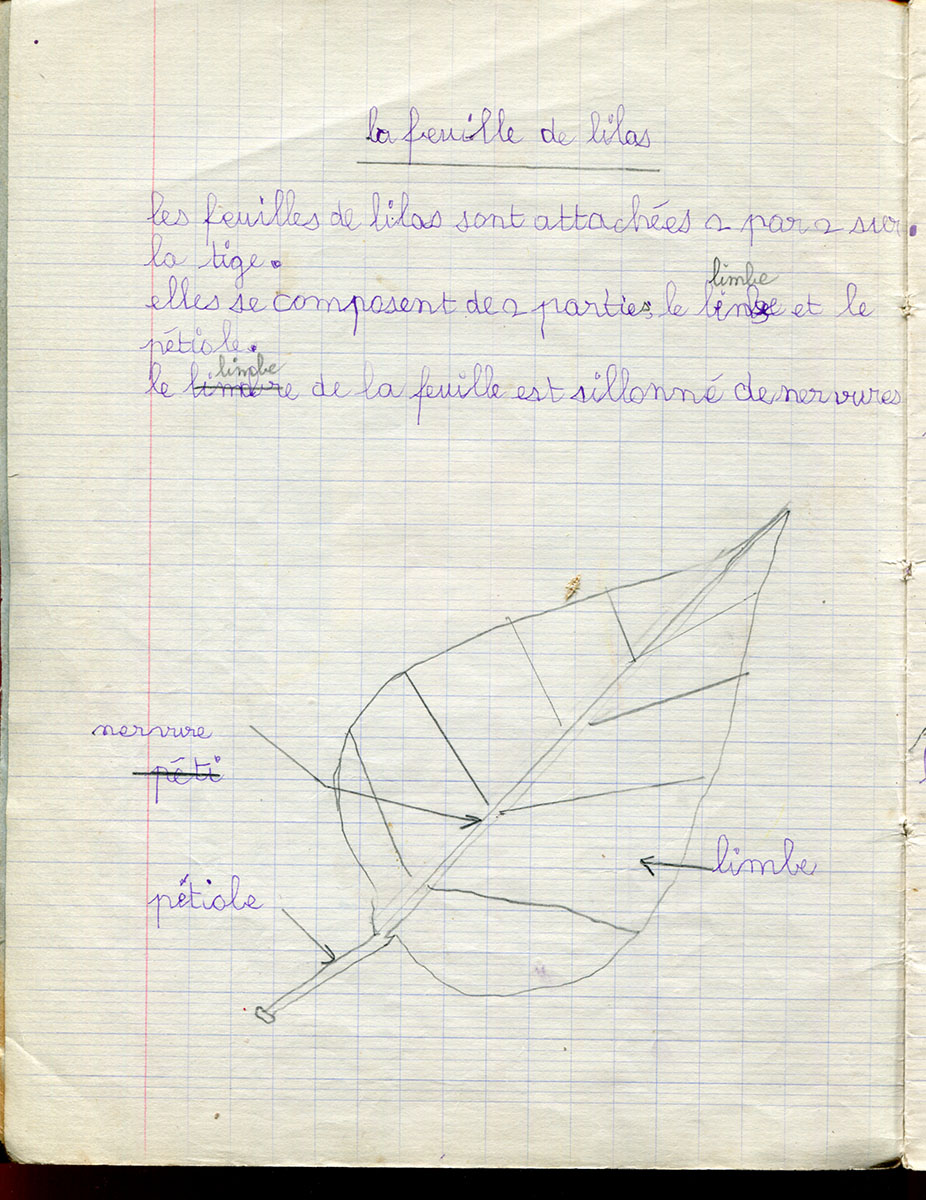 la feuille de lilas
les feuilles de lilas sont attachées 2 par 2 sur
la tige.
limbe
elles se composent de 2 parties, le limbe et le
pétiole.
limbe
le limbre de la feuille est sillonné de nervures
nervure
péti
limbe
pétiole